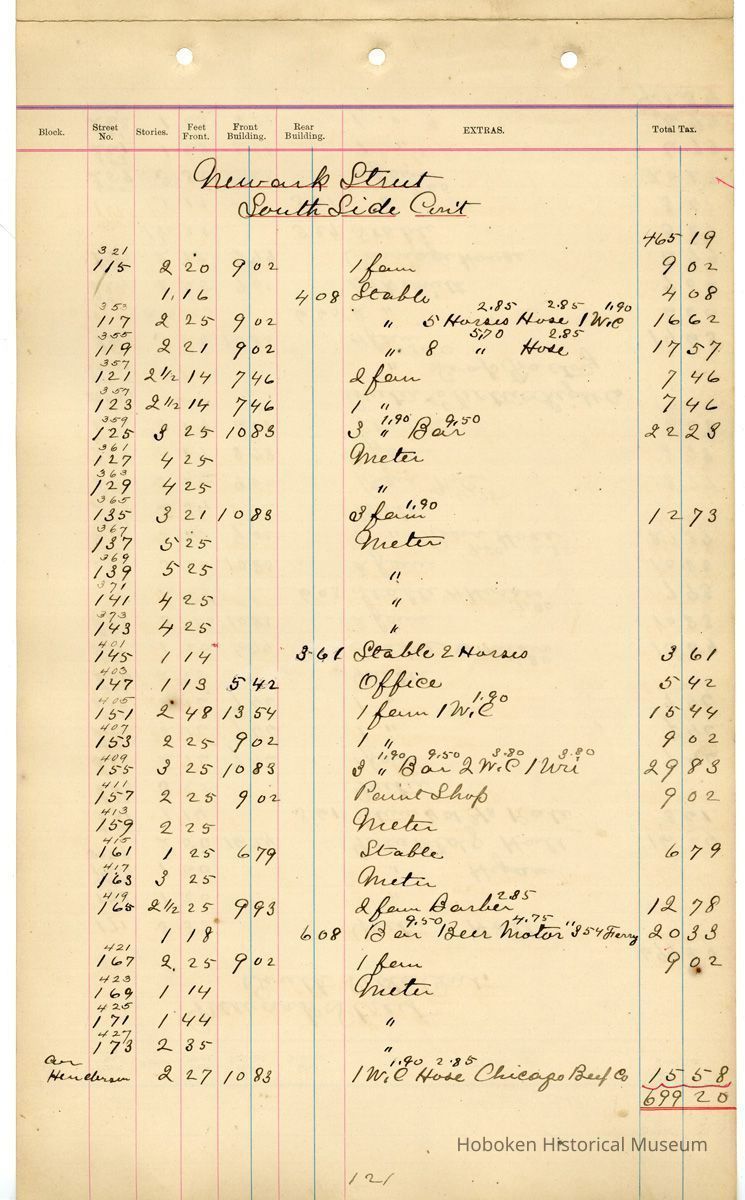 Block. Street No. Stories. Feet Front. Front Building. Rear Building. EXTRAS. Total Tax.
Newark Street
South Side Con't
465 19
321
115 2 20 9 02 1 fam 9 02
1 16 4 08 Stable 4 08
353 2.85 2.85 1.90
117 2 25 9 02 " 5 Horses Hose 1 W.C 16 62
355 5.70 2.85
119 2 21 9 02 " 8 " Hose 17 57
357
121 2 1/2 14 7 46 2 fam 7 46
357
123 2 1/2 14 7 46 1 " 7 46
359 1.90 9.50
125 3 25 10 83 3 " Bar 22 23
361
127 4 25 Meter
363
129 4 25 "
365 1.90
135 3 21 10 83 3 fam 12 73
367
137 5 25 Meter
369
139 5 25 "
371
141 4 25 "
373
143 4 25 "
401
145 1 14 3 61 Stable 2 Horses 3 61
403
147 1 13 5 42 Office 5 42
405 1.90
151 2 48 13 54 1 fam 1 W.C 15 44
407
153 2 25 9 02 1 " 9 02
409 1.90 9.50 3.80 3.80
155 3 25 10 83 3 " Bar 2 W.C 1 Uri 29 83
411
157 2 25 9 02 Paint Shop 9 02
413
159 2 25 Meter
415
161 1 25 6 79 Stable 6 79
417
163 3 25 Meter
419 2.85
165 2 1/2 25 9 93 2 fam Barber 12 78
9.50 4.75
1 18 6 08 Bar Beer Motor " 354 Ferry 20 33
421
167 2 25 9 02 1 fam 9 02
423
169 1 14 Meter
425
171 1 44 "
427
173 2 35 "
Cor 1.90 2.85
Henderson 2 27 10 83 1 W.C Hose Chicago Beef Co 15 58
699 20
Hoboken Historical Museum
121